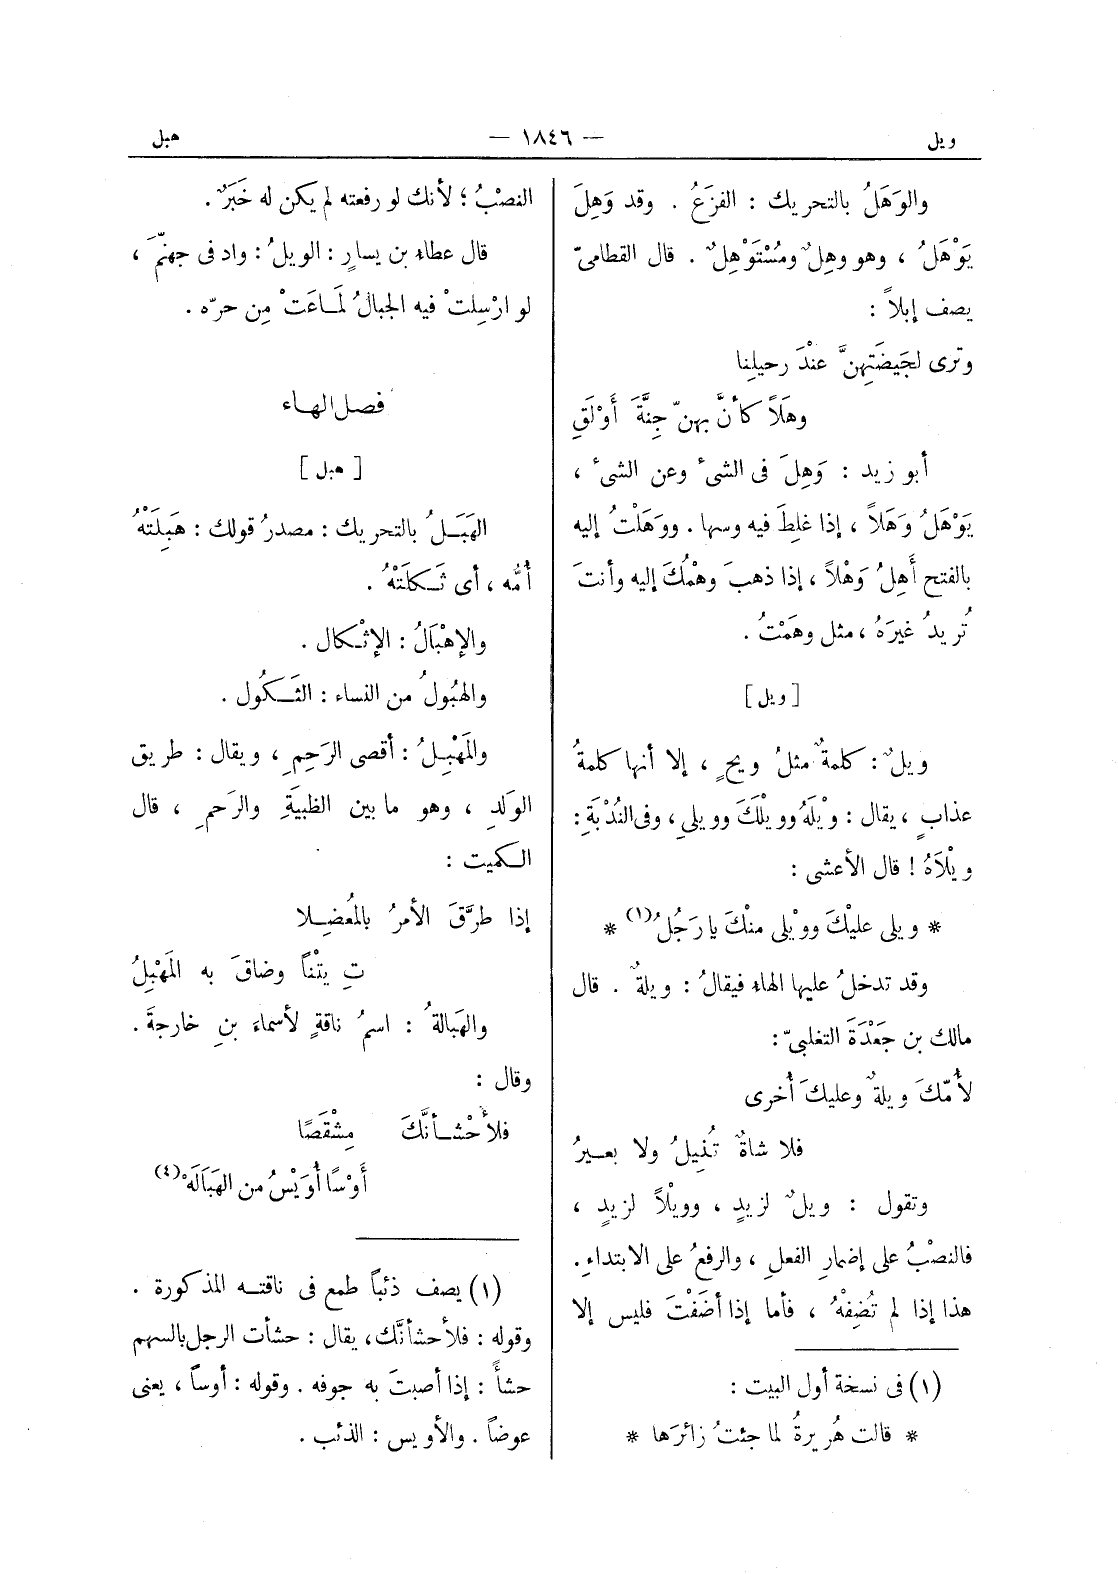 ويل
— ١٨٤٦ —
هبل
والوَهَلُ بالتحريك : الفزَعُ . وقد وَهِلَ
يَوْهَلُ ، وهو وهِلٌ ومُسْتَوْهِلٌ . قال القطامىّ
يصف إبلاً :
وترى لجَيضَتِهِنَّ عنْدَ رحيلِنا
وهَلاً كأنَّ بهنّ جِنَّةَ أَوْلَقِ
أبو زيد : وَهِلَ فى الشىءُ وعن الشىءُ ،
يَوْهَلُ وَهَلاً ، إذا غلِطَ فيه وسها . ووَهَلْتُ إليه
بالفتح أَهِلُ وَهْلاً ، إذا ذهبَ وهْمُكَ إليه وأنتَ
تُريدُ غيرَهُ ، مثل وهَمْتُ .
[ ويل ]
ويلٌ : كلمةٌ مثلُ ويحٍ ، إلا أنها كلمةُ
عذابٍ ، يقال : ويْلَهُ وويْلَكَ وويلى ، وفى النُدْبَةِ :
ويْلَاهُ ! قال الأعشى :
* ويلى عليْكَ وويْلى منْكَ يا رَجُلُ (١) *
وقد تدخلُ عليها الهاء فيقالُ : ويلةٌ . قال
مالك بن جَعْدَةَ التغلبىّ :
لأُمّكَ ويلةٌ وعليكَ أُخرى
فلا شاةٌ تُنِيلُ ولا بعيرُ
وتقول : ويلٌ لزيدٍ ، وويْلاً لزيدٍ ،
فالنصْبُ على إضمارِ الفعلِ ، والرفعُ على الابتداءِ .
هذا إذا لم تُضِفْهُ ، فأما إذا أضَفْتَ فليس إلا
(١) فى نسخة أول البيت :
* قالت هُريرةُ لما جئتُ زائرَها *
النصْبُ ؛ لأنك لو رفعته لم يكن له خَبَرٌ .
قال عطاء بن يسارٍ : الويلُ : واد فى جهنّمَ ،
لو ارْسِلتْ فيه الجبالُ لَمـاعَتْ مِن حرّه .
فصل الهاء
[ هبل ]
الهَبَـلُ بالتحريك : مصدرُ قولك : هَبِلَتْهُ
أُمُّه ، أى ثَـكلَتْهُ .
والإهْبَالُ : الإثْـكال .
والهبُولُ من النساء : الثَـكُول .
والمَهْبِـلُ : أقصى الرَحِمِ ، ويقال : طريق
الوَلَدِ ، وهو ما بين الظبيَةِ والرَحمِ ، قال
الـكميت :
إذا طرَّقَ الأمرُ بالمُعضِـلا
تِ يتْناً وضاقَ به المَهْبِلُ
والهَبالةُ : اسمُ ناقةٍ لأسماءَ بنِ خارجةَ .
وقال :
فلأَحْشَـأنَّكَ مِشْقَصًا
أَوْسًا أُوَيْسُ من الهَبَالَهْ (٤)
(١) يصف ذئباً طمع فى ناقتـه المذكورة .
وقوله : فلأحشأنَّك ، يقال : حشأت الرجل بالسهم
حشأً : إذا أصبتَ به جوفه . وقوله : أوساً ، يعنى
عوضاً . والأويس : الذئب .